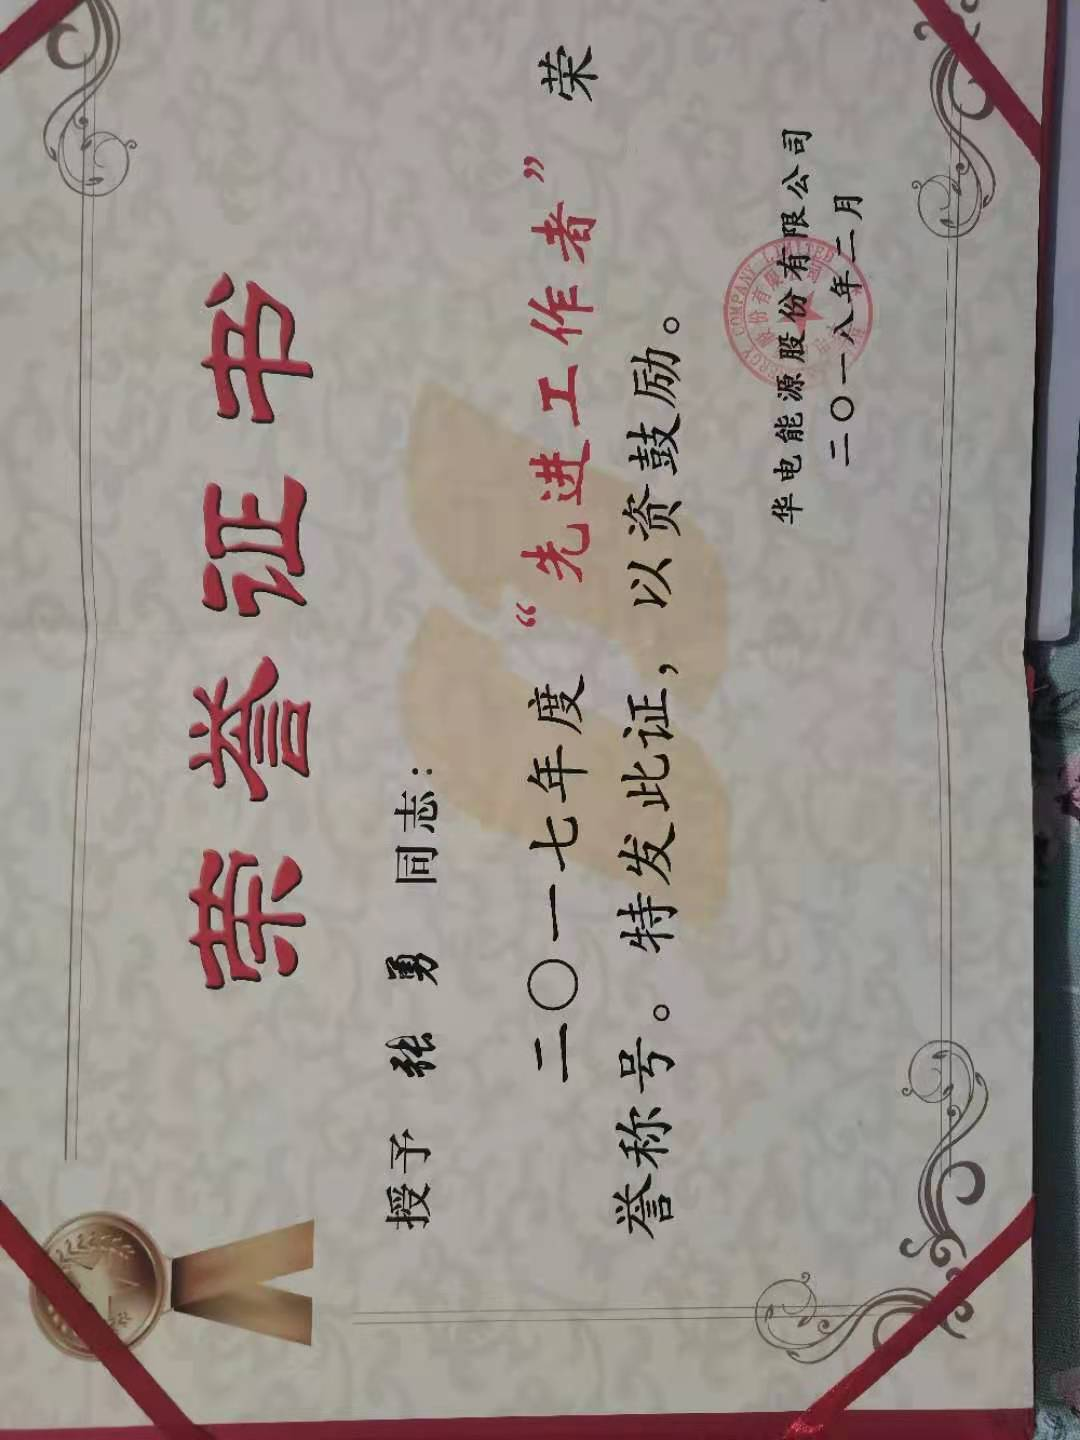 荣誉证书
授予 张勇 同志：
二〇一七年度“先进工作者”荣
誉称号。特发此证，以资鼓励。
华电能源股份有限公司
二〇一八年二月